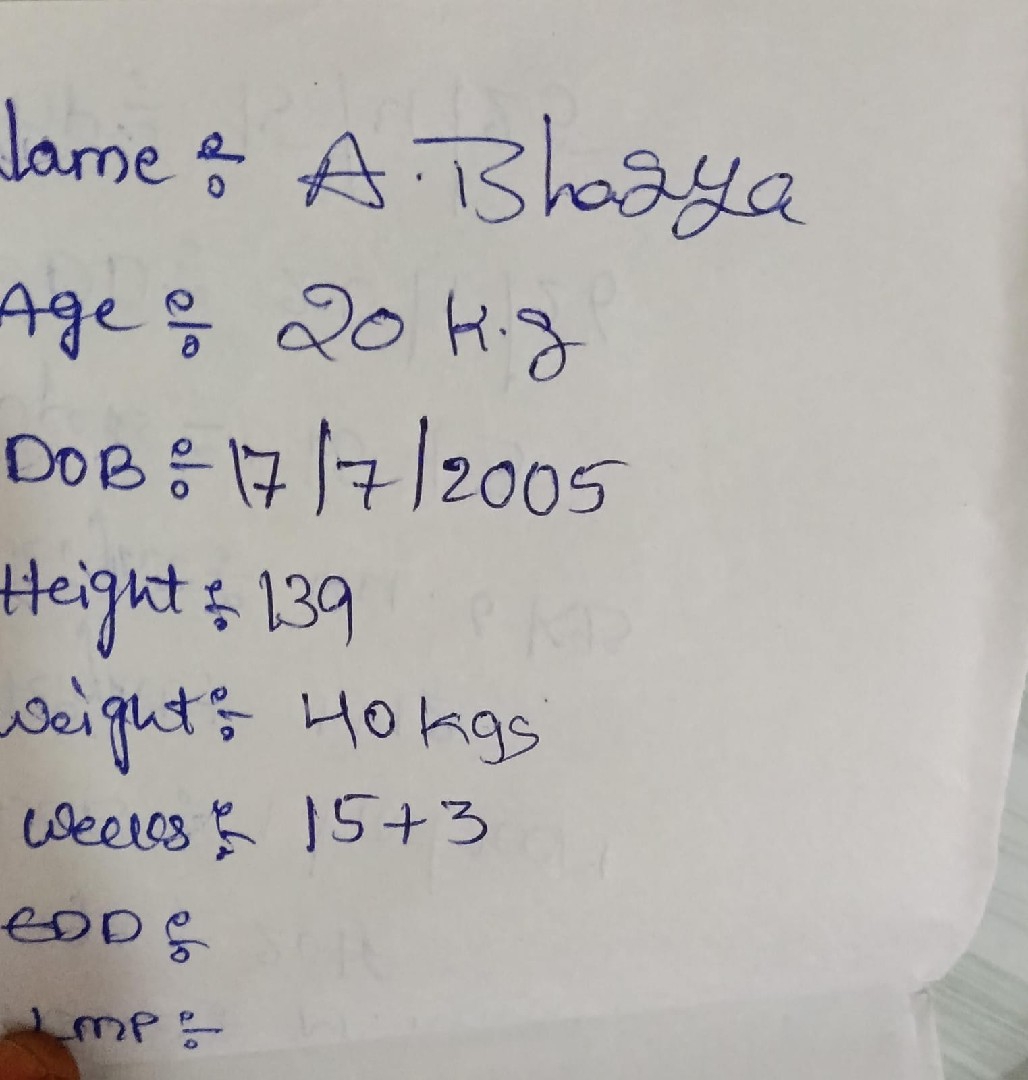 Name : A. Bhagya
Age : 20 K.g
DOB : 17/7/2005
Height : 139
weight : 40 kgs
weeks : 15+3
EDD :
LMP :